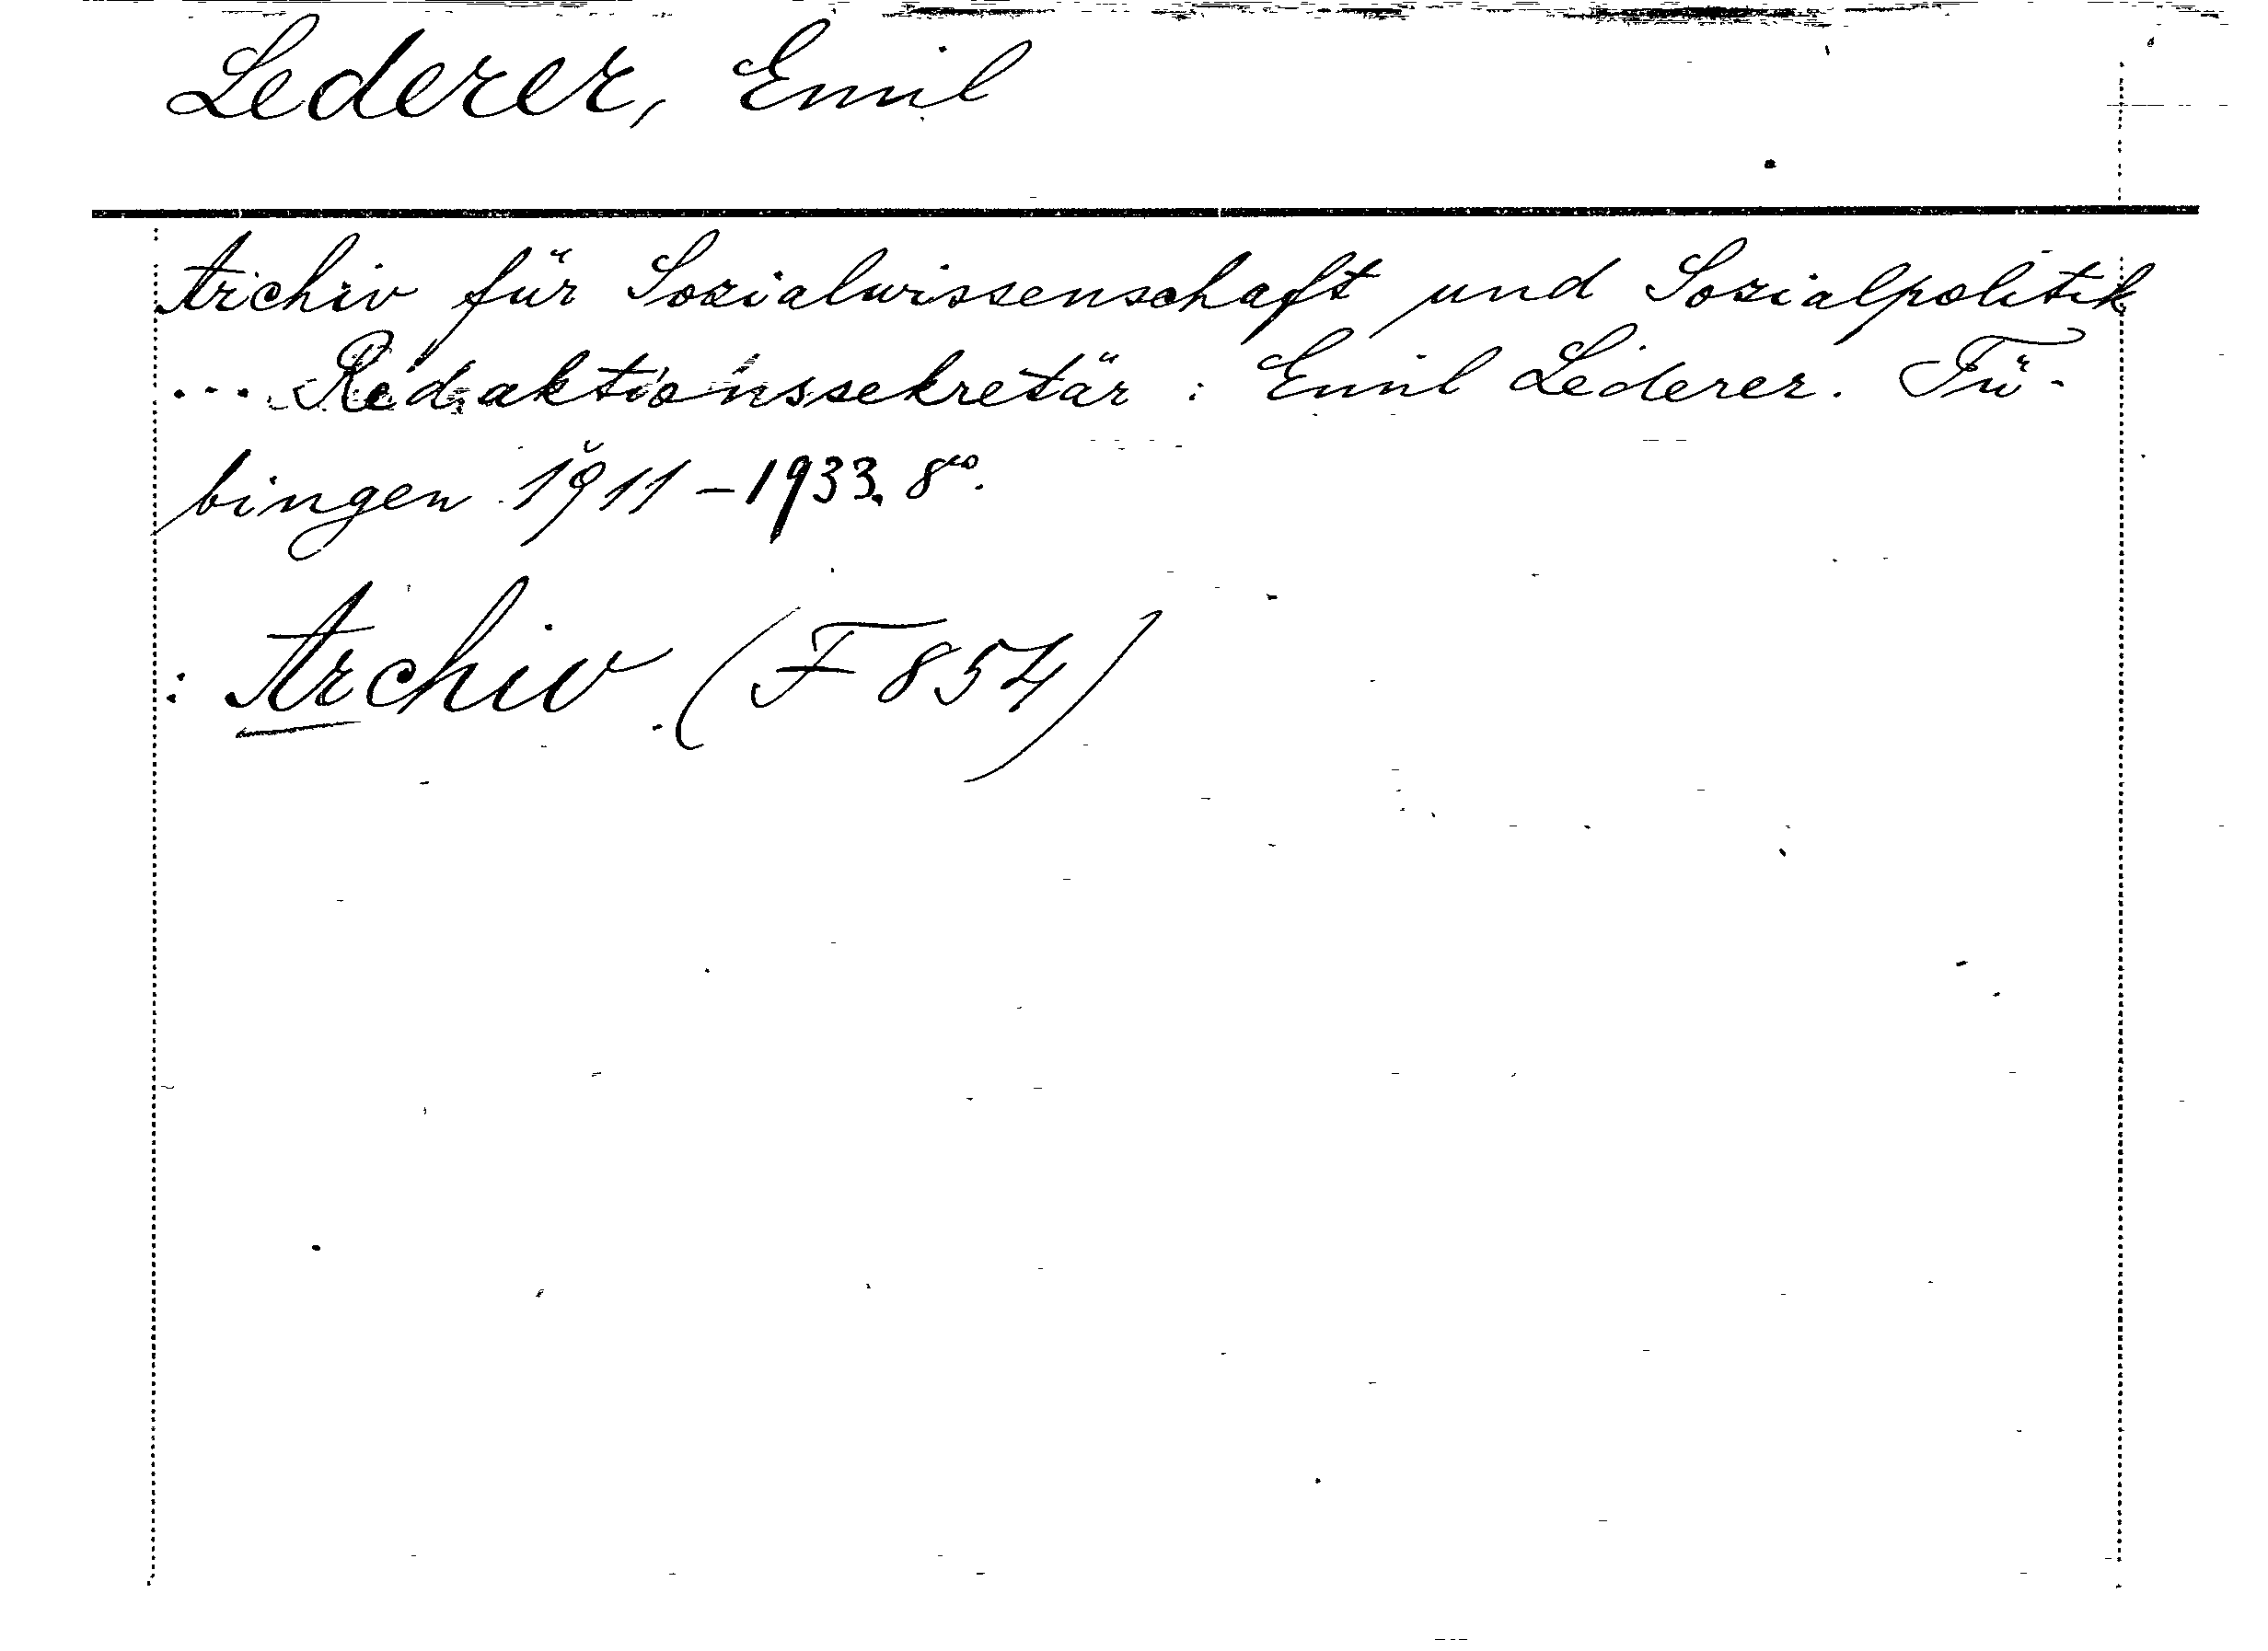 Lederer, Emil
Archiv für Sozialwissenschaft und Sozialpolitik
... Redaktionssekretär : Emil Lederer. Tü-
bingen 1911-1933. 8vo.
: Archiv (F 854)